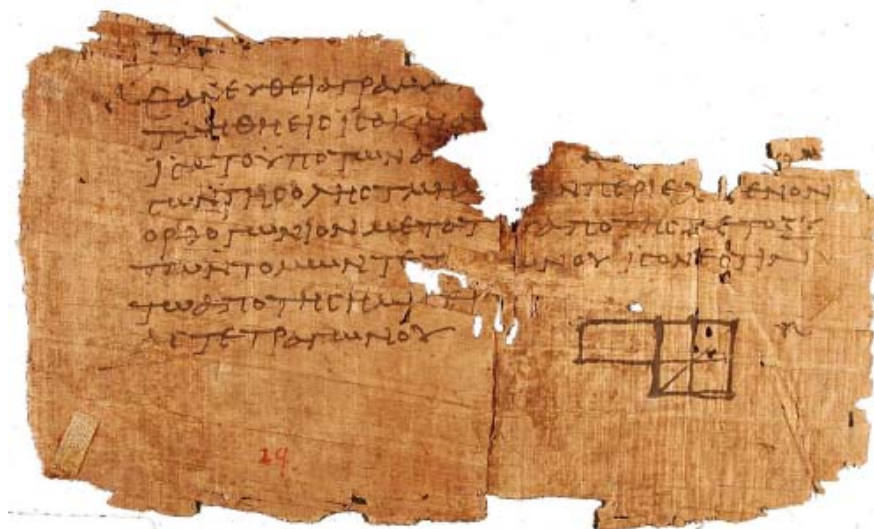 ΕΑΝ ΕΥΘΕΙΑ ΓΡΑΜΜ
ΤΜΗΘΗ ΕΙϹ ΙϹΑ ΚΑΙ ΑΝ
ΙϹΑ ΤΟ ΥΠΟ ΤΩΝ Α
ϹΩΝ ΤΗϹ ΟΛΗϹ ΤΜΗ ΩΝ ΠΕΡΙΕΧ ΜΕΝΟΝ
ΟΡΘΟΓΩΝΙΟΝ ΜΕΤΑ ΤΟΥ ΑΠΟ ΤΗϹ ΜΕΤΟΞΥ
ΤΩΝ ΤΟΜΩΝ ΤΕΤ ΩΝΟΥ ΙϹΟΝ ΕϹΤΙΝ
ΤΩ ΑΠΟ ΤΗϹ ΗΜΙϹΕΙ
ΑϹ ΤΕΤΡΑΓΩΝΟΥ
29